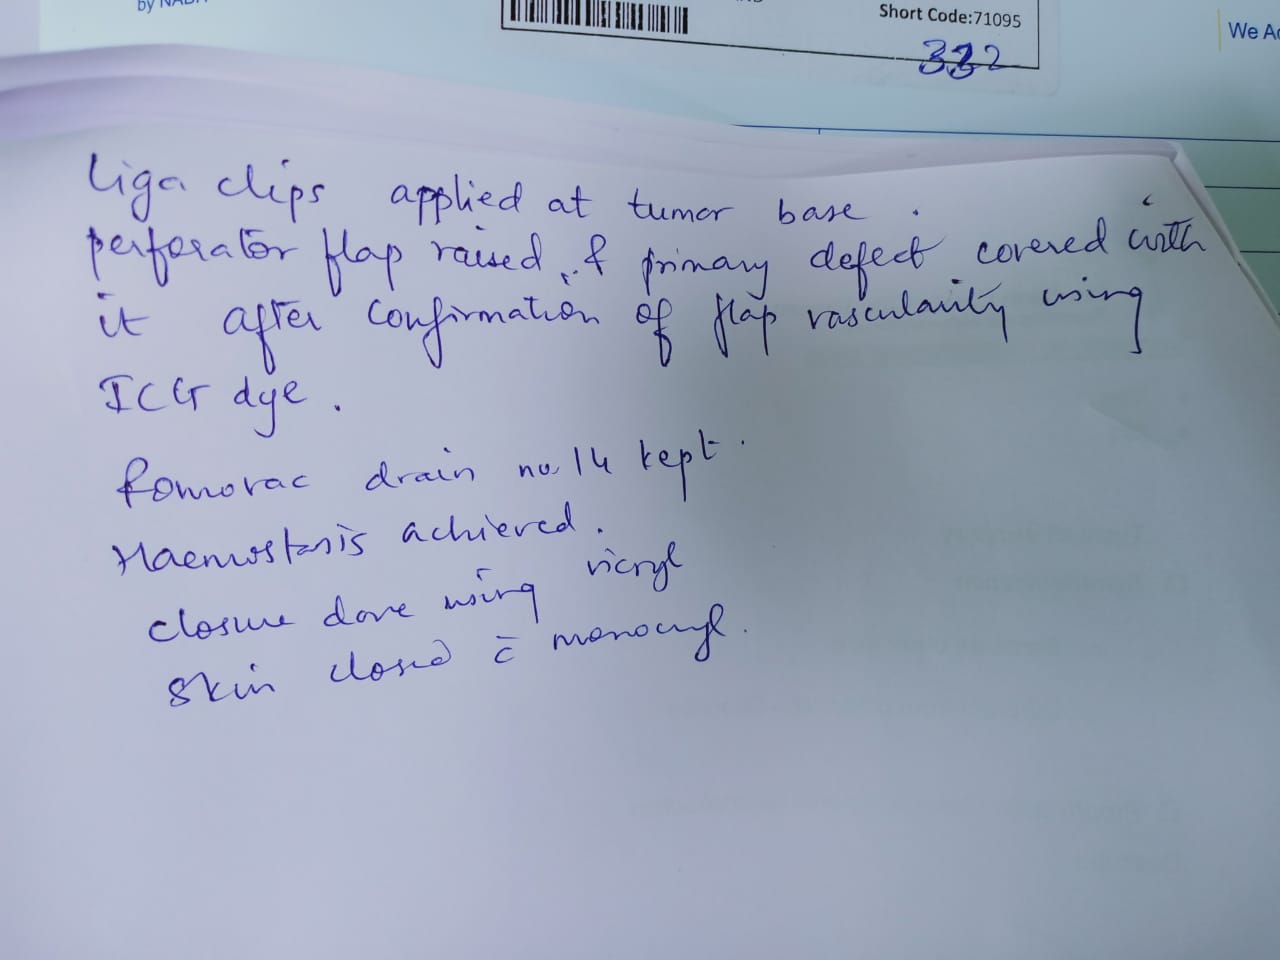 by NABH
Short Code:71095
We Ac
332
Liga clips applied at tumor base.
perforator flap raised & primary defect covered with
it after confirmation of flap vascularity using
ICG dye.
Romovac drain no 14 kept.
Haemostasis achieved.
closure done using vicryl
skin closed c̄ monocryl.